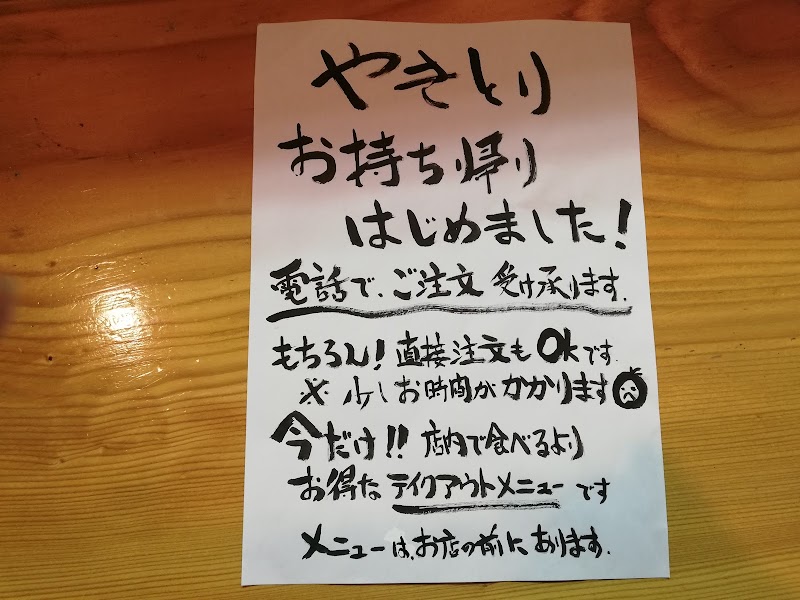 やきとり
お持ち帰り
はじめました!
電話で、ご注文 受け承ります.
もちろん! 直接注文も Okです.
※ 少しお時間がかかります
今だけ!! 店内で食べるより
お得な テイクアウトメニュー です
メニューは、お店の前にあります.